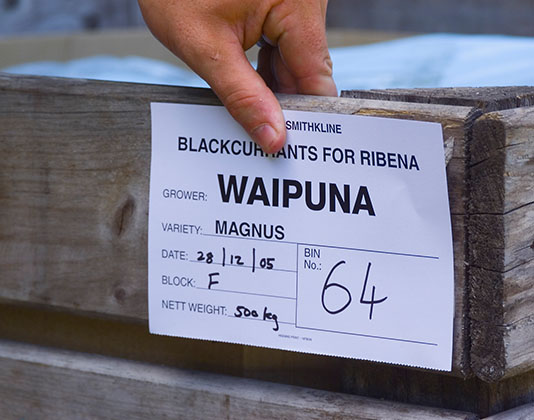 SMITHKLINE
BLACKCURRANTS FOR RIBENA
GROWER: WAIPUNA
VARIETY: MAGNUS
DATE: 28/12/05
BLOCK: F
NETT WEIGHT: 500 kg
BIN
No.: 64